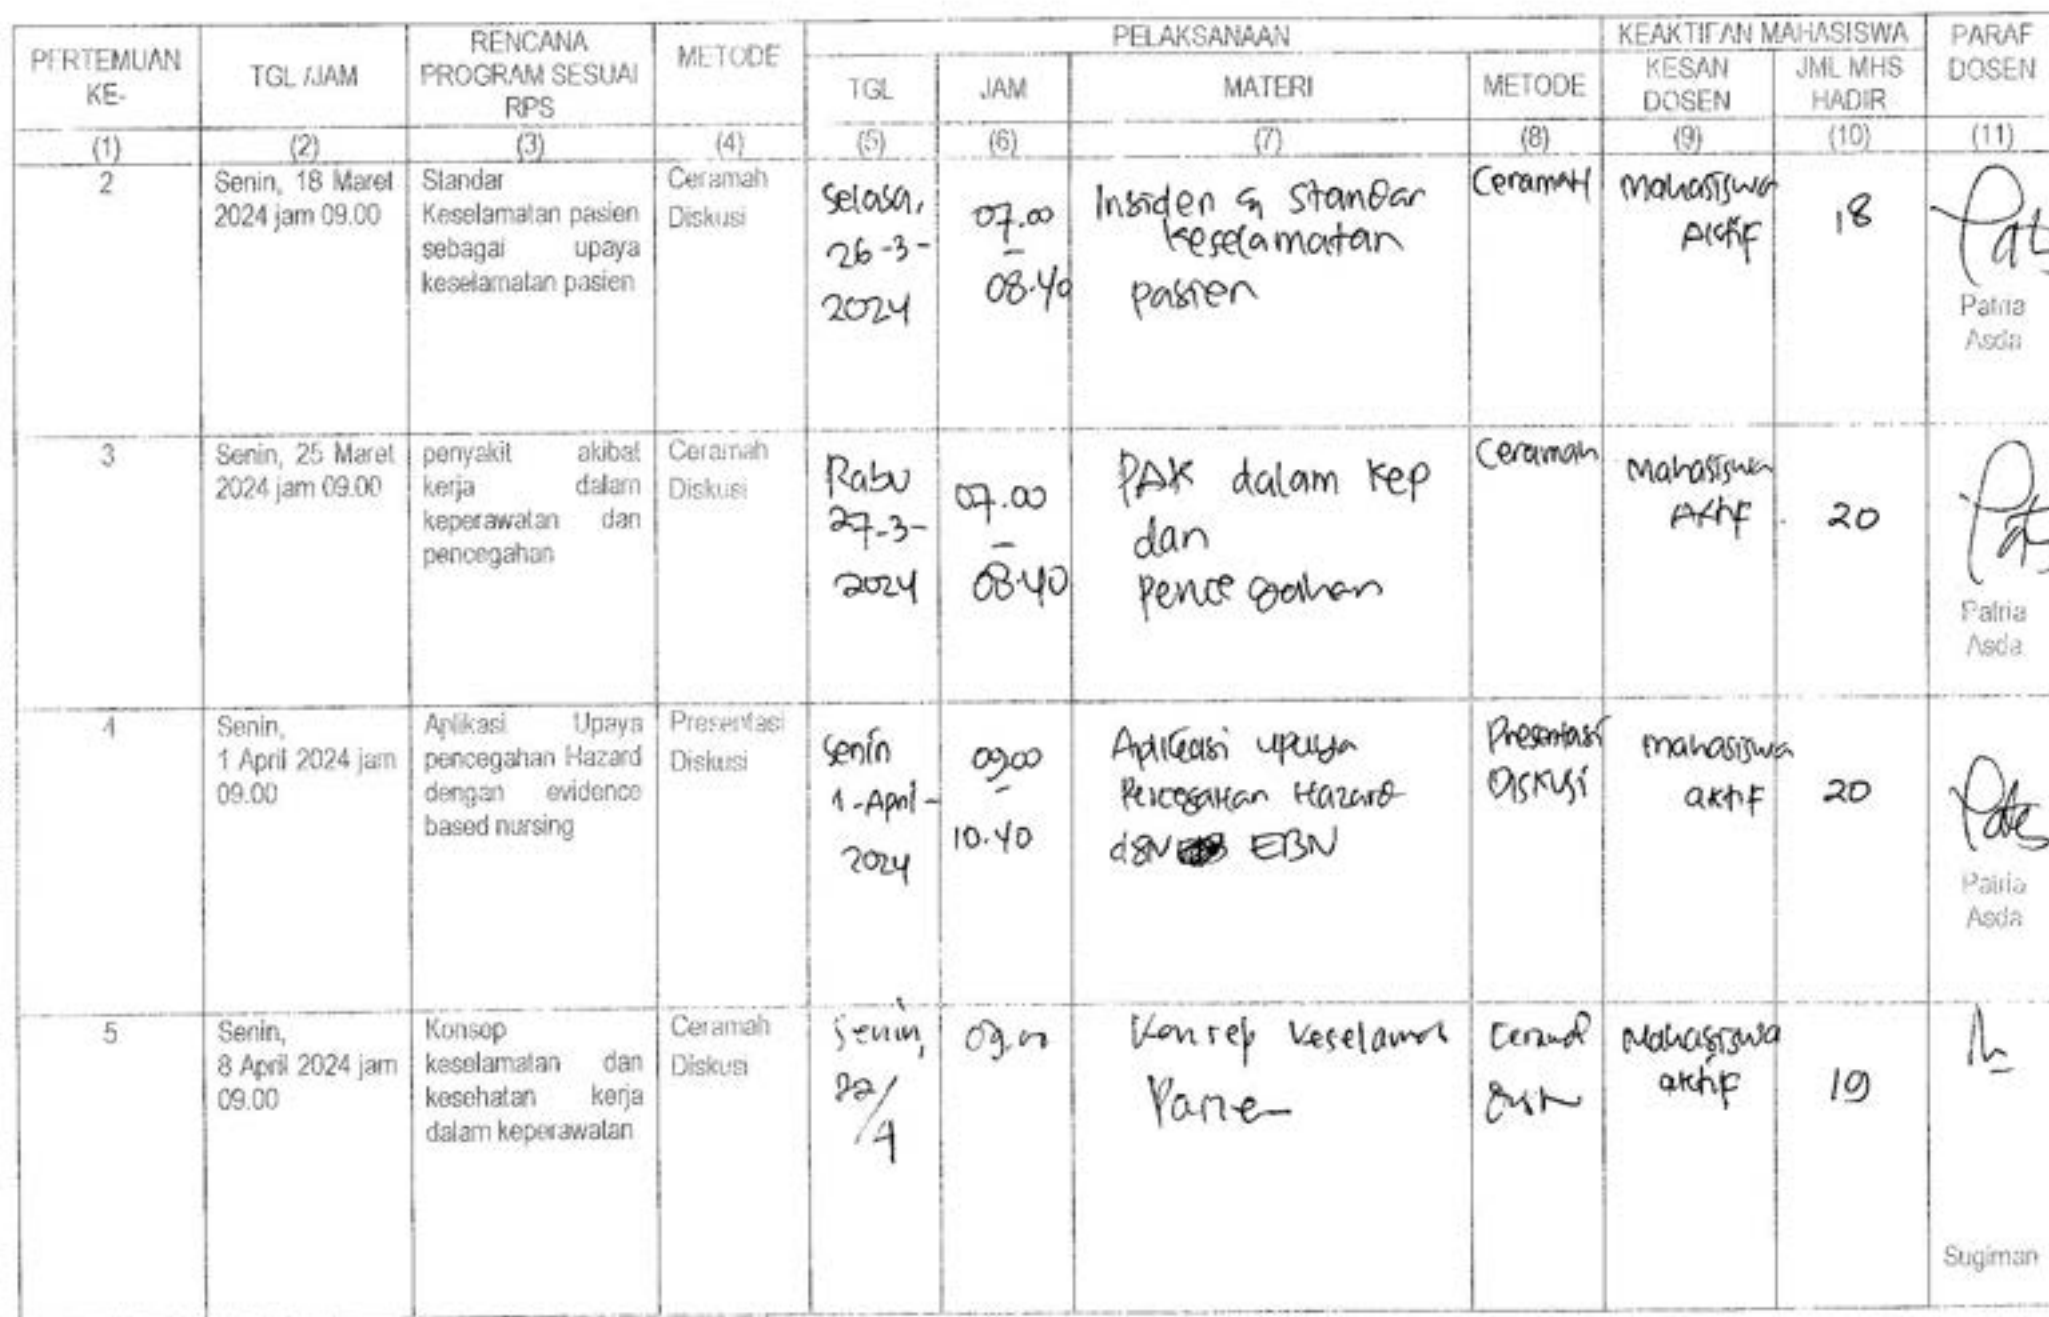 PERTEMUAN KE-
TGL /JAM
RENCANA PROGRAM SESUAI RPS
METODE
PELAKSANAAN
TGL
JAM
MATERI
METODE
KEAKTIFAN MAHASISWA
KESAN DOSEN
JML MHS HADIR
PARAF DOSEN
(1) (2) (3) (4) (5) (6) (7) (8) (9) (10) (11)
2
Senin, 18 Maret
2024 jam 09.00
Standar
Keselamatan pasien
sebagai upaya
keselamatan pasien
Ceramah
Diskusi
Selasa,
26-3-
2024
07.00
–
08.40
Insiden & Standar
keselamatan
pasien
Ceramah
Mahasiswa
Aktif
18
Patria
Asda
3
Senin, 25 Maret
2024 jam 09.00
penyakit akibat
kerja dalam
keperawatan dan
pencegahan
Ceramah
Diskusi
Rabu
27-3-
2024
07.00
–
08.40
PAK dalam kep
dan
pencegahan
Ceramah
Mahasiswa
Aktif
20
Patria
Asda
4
Senin,
1 April 2024 jam
09.00
Aplikasi Upaya
pencegahan Hazard
dengan evidence
based nursing
Presentasi
Diskusi
Senin
1-April-
2024
09.00
–
10.40
Aplikasi upaya
Pencegahan Hazard
dgn EBN
Presentasi
Diskusi
mahasiswa
aktif
20
Patria
Asda
5
Senin,
8 April 2024 jam
09.00
Konsep
keselamatan dan
kesehatan kerja
dalam keperawatan
Ceramah
Diskusi
Senin,
22/4
09.00
Konsep Keselamat
Pasien
Mahasiswa
aktif
19
Sugiman